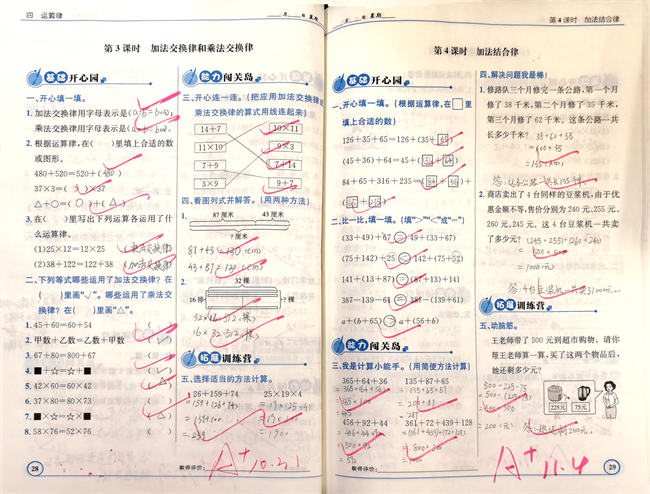 四 运算律
月 日 星期
第3课时 加法交换律和乘法交换律
基础开心园
一、开心填一填。
1. 加法交换律用字母表示是(a+b=b+a),
乘法交换律用字母表示是
2. 根据运算律,在( )里填上合适的数
或图形。
480+520=520+(480)
37×3=(3)×37
△+○=(○)+(△)
3. 在( )里写出下列运算各运用了什
么运算律。
(1)25×12=12×25 (乘法交换律)
(2)38+122=122+38 (加法交换律)
二、下列等式哪些运用了加法交换律?在
( )里画“√”。哪些运用了乘法交
换律?在( )里画“△”。
1. 45+60=60+54 ( )
2. 甲数+乙数=乙数+甲数
3. 67+80=800+67 ( )
4. ■+☆=☆+■
5. 42×60=60×42 (△)
6. 37×80=80×73 ( )
7. ■×☆=☆×■ (△)
8. 58×76=52×76 ( )
28
能力闯关岛
三、开心连一连。(把应用加法交换律和
乘法交换律的算式用线连起来)
14+7 10×11
11×10 9×3
7+9 7+14
3×9 9+7
四、看图列式并解答。(用两种方法)
1. 87厘米 43厘米
?厘米
87+43=130(cm)
43+87=130(cm)
2. 32棵
16排 ?棵
32×16=512(棵)
16×32=512(棵)
拓展训练营
五、选择适当的方法计算。
26+159+74 25×19×4
=159+(26+74) =19×(25×4)
=159+100 =19×100
=259 =1900
教师评价: A+ 10.21
月 日 星期
第4课时 加法结合律
第4课时 加法结合律
基础开心园
一、开心填一填。(根据运算律,在□里
填上合适的数)
126+35+65=126+(35+65)
(45+36)+64=45+(36+64)
84+65+316+235=(84+316)+
(65+235)
二、比一比,填一填。(填“>”“<”或“=”)
(33+49)+67=49+(33+67)
(75+142)+25=142+(75+52)
141+(13+87)(87+13)+141
387-139-61=387-(139+61)
a+(b+65)a+(56+b)
能力闯关岛
三、我是计算小能手。(用简便方法计算)
365+64+36 135+87+65
=365+(64+36) =135+65+87
=365+100 =200+87
=465 =287
456+92+44 361+72+439+128
=456+44+92 =(361+439)+(72+128)
=500+92 =800+200
=592 =1000
教师评价: A+ 11.4
四、解决问题我最棒!
1. 修路队三个月修完一条公路,第一个月
修了38千米,第二个月修了35千米,
第三个月修了62千米。这条公路一共
长多少千米? 38+62+35
=100+35
2. 商店卖出了4台同样的豆浆机,由于优
惠金额不等,售价分别为240元、255元、
260元、245元。这4台豆浆机一共卖
了多少元? (245+255)+(260+240)
=500+500
=1000(元)
拓展训练营
五、动脑筋。
王老师带了500元到超市购物。请你
帮王老师算一算,买了这两个物品后,
她还剩多少元?
500-225-75
=500-(225+75)
=500-300
=200(元)
225元 75元
29